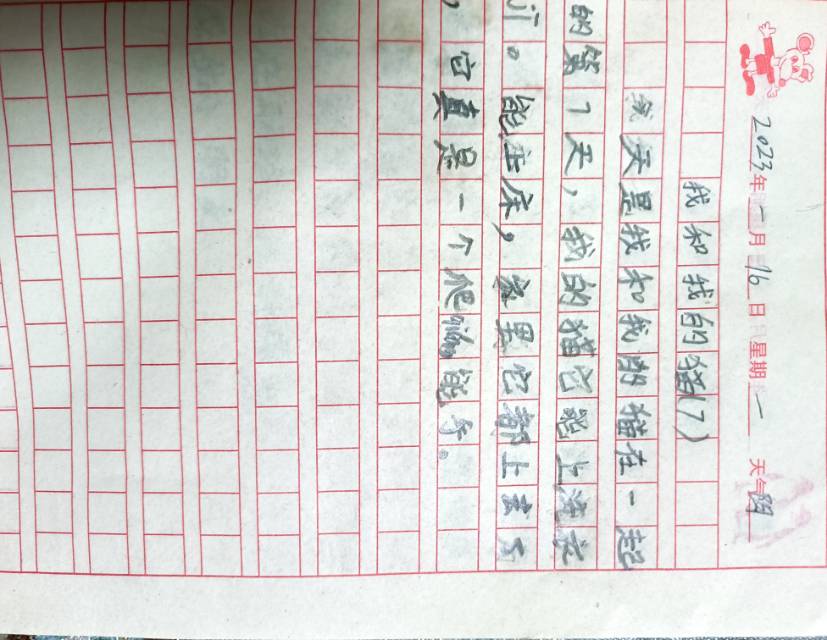 2023年一月16日 星期一 天气阴
我和我的猫(7)
天是我和我 猫在一起
的第7天，我的猫它 上洗衣
ji。能上床，家里它都上去
，它真是一个爬 能手。